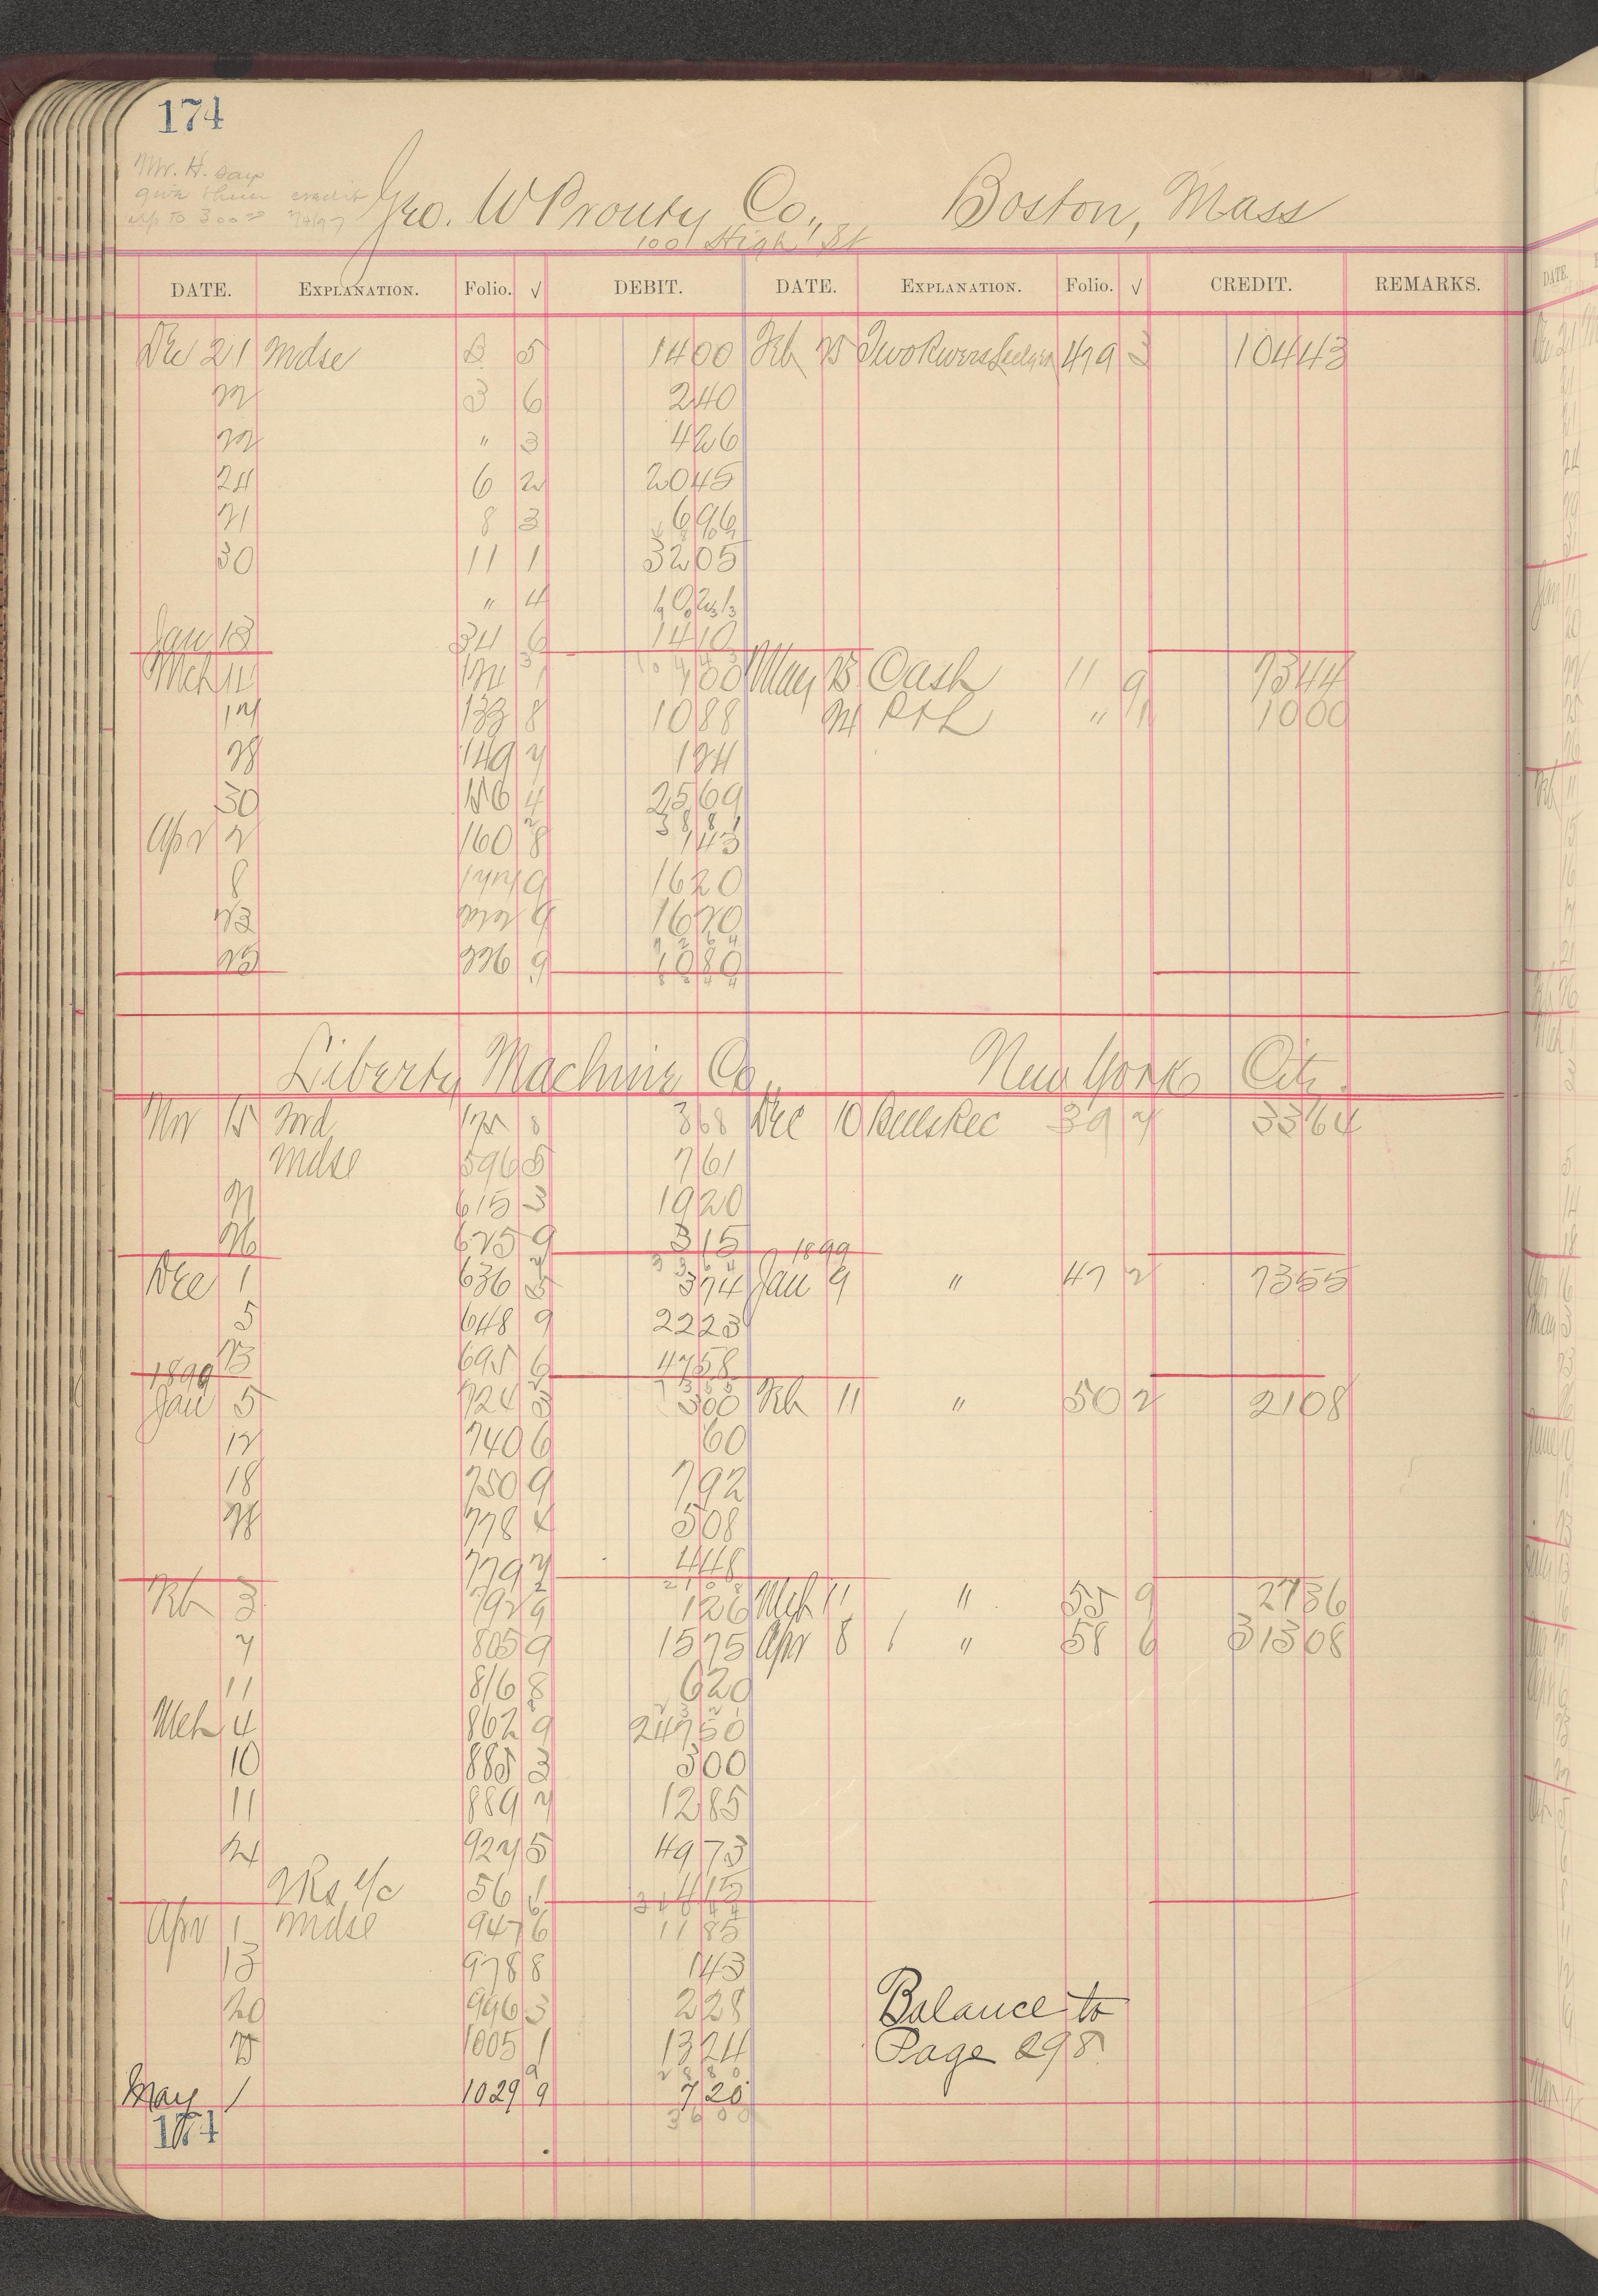 174
Mr. H. says
give them credit
up to 300
Geo. W Prouty Co., Boston, Mass
100 High St
DATE. EXPLANATION. Folio. √ DEBIT. DATE. EXPLANATION. Folio. √ CREDIT. REMARKS.
Dec 21 Mdse 5 1400 Feb 25 Two Rivers Ledger 479 3 10443
22 3 6 240
22 " 3 426
24 6 2 2045
8 3 696
30 11 1 3205
" 4
Jan 13 34 6 1410
Mch 11 700 May 25 Cash 11 9 7344
17 133 8 1088 " 1000
28 149 7
30 156 4 2569
Apr 2 160 8 143
8 177 9 1620
23 222 9 1620
25 226 9 1080
Liberty Machine Co., New York City.
Nov 15 8 368 Dec 10 Bills Rec 39 7 3364
Mdse 596 5 761
21 615 3 1920
26 625 9 315 1899
Dec 1 636 5 374 Jan 9 " 47 2 7355
5 648 9 2223
1899 23 695 6 4758
Jan 5 724 3 300 Feb 11 " 50 2 2108
12 740 6 60
18 750 9 792
28 778 4 508
779 7 448
Feb 3 792 9 126 Mch 11 " 55 9 2736
7 805 9 1575 Apr 8 " 58 6 31308
11 816 8 620
Mch 4 862 9 24750
10 885 3 300
11 889 7 1285
24 927 5 4973
56 1 415
Apr 1 Mdse 947 6 1185
13 978 8 143
20 996 3 228 Balance to
25 1005 1 1324 Page 298
May 1 1029 9 720
3600
174